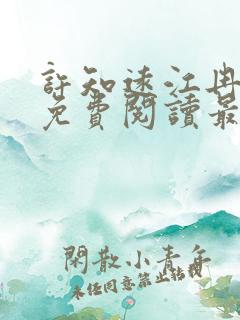 許知遠江冉
免費閱讀最
閑散小青年
未任同意禁止转载